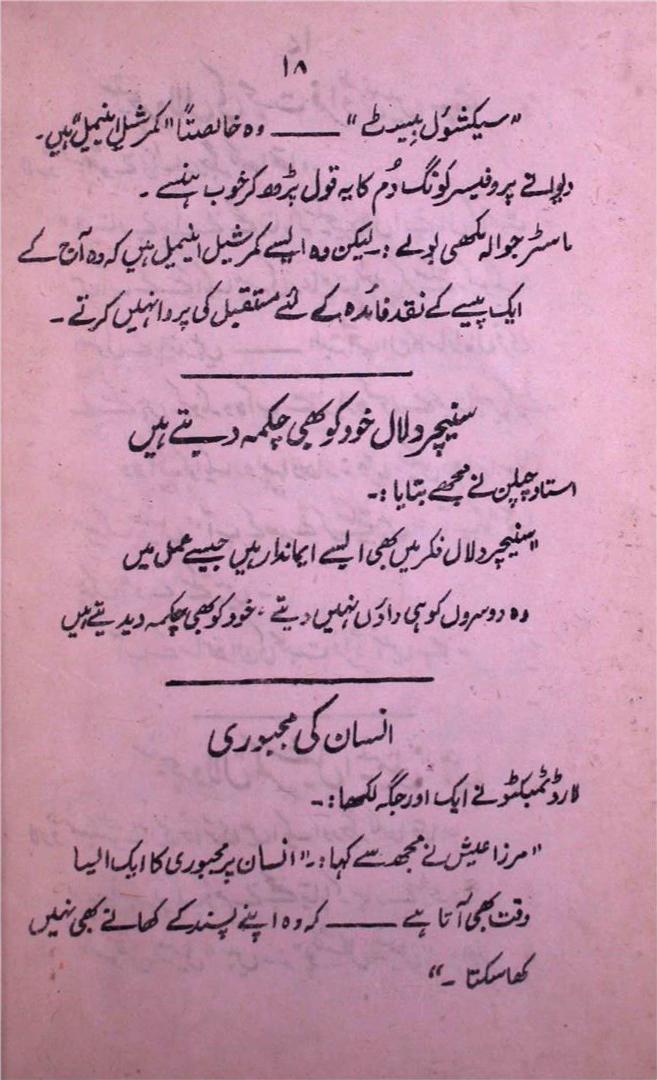 ۱۸
"سیکشوئل بیسٹ" ——— وہ خالصتاً "کمرشل اینیمل" ہیں۔
دیوانے پروفیسر کونگ دُم کا یہ قول پڑھ کر خوب ہنسے ۔
ماسٹر جوالہ مکھی بولے :۔ لیکن وہ ایسے کمرشیل اینیمل ہیں کہ وہ آج کے
ایک پیسے کے نقد فائدہ کے لئے مستقبل کی پروا نہیں کرتے ۔
سنیچر دلال خود کو بھی چکمہ دیتے ہیں
استاد چلپن نے مجھے بتایا :۔
"سنیچر دلال فکر میں بھی ایسے ایماندار ہیں جیسے عمل میں
وہ دوسروں کو ہی داؤں نہیں دیتے ، خود کو بھی چکمہ دیدیتے ہیں
انسان کی مجبوری
لارڈ ٹمبکٹو نے ایک اور جگہ لکھا :۔
"مرزا عیش نے مجھ سے کہا :۔ "انسان پر مجبوری کا ایک ایسا
وقت بھی آتا ہے ——— کہ وہ اپنے پسند کے کھانے بھی نہیں
کھا سکتا ۔"